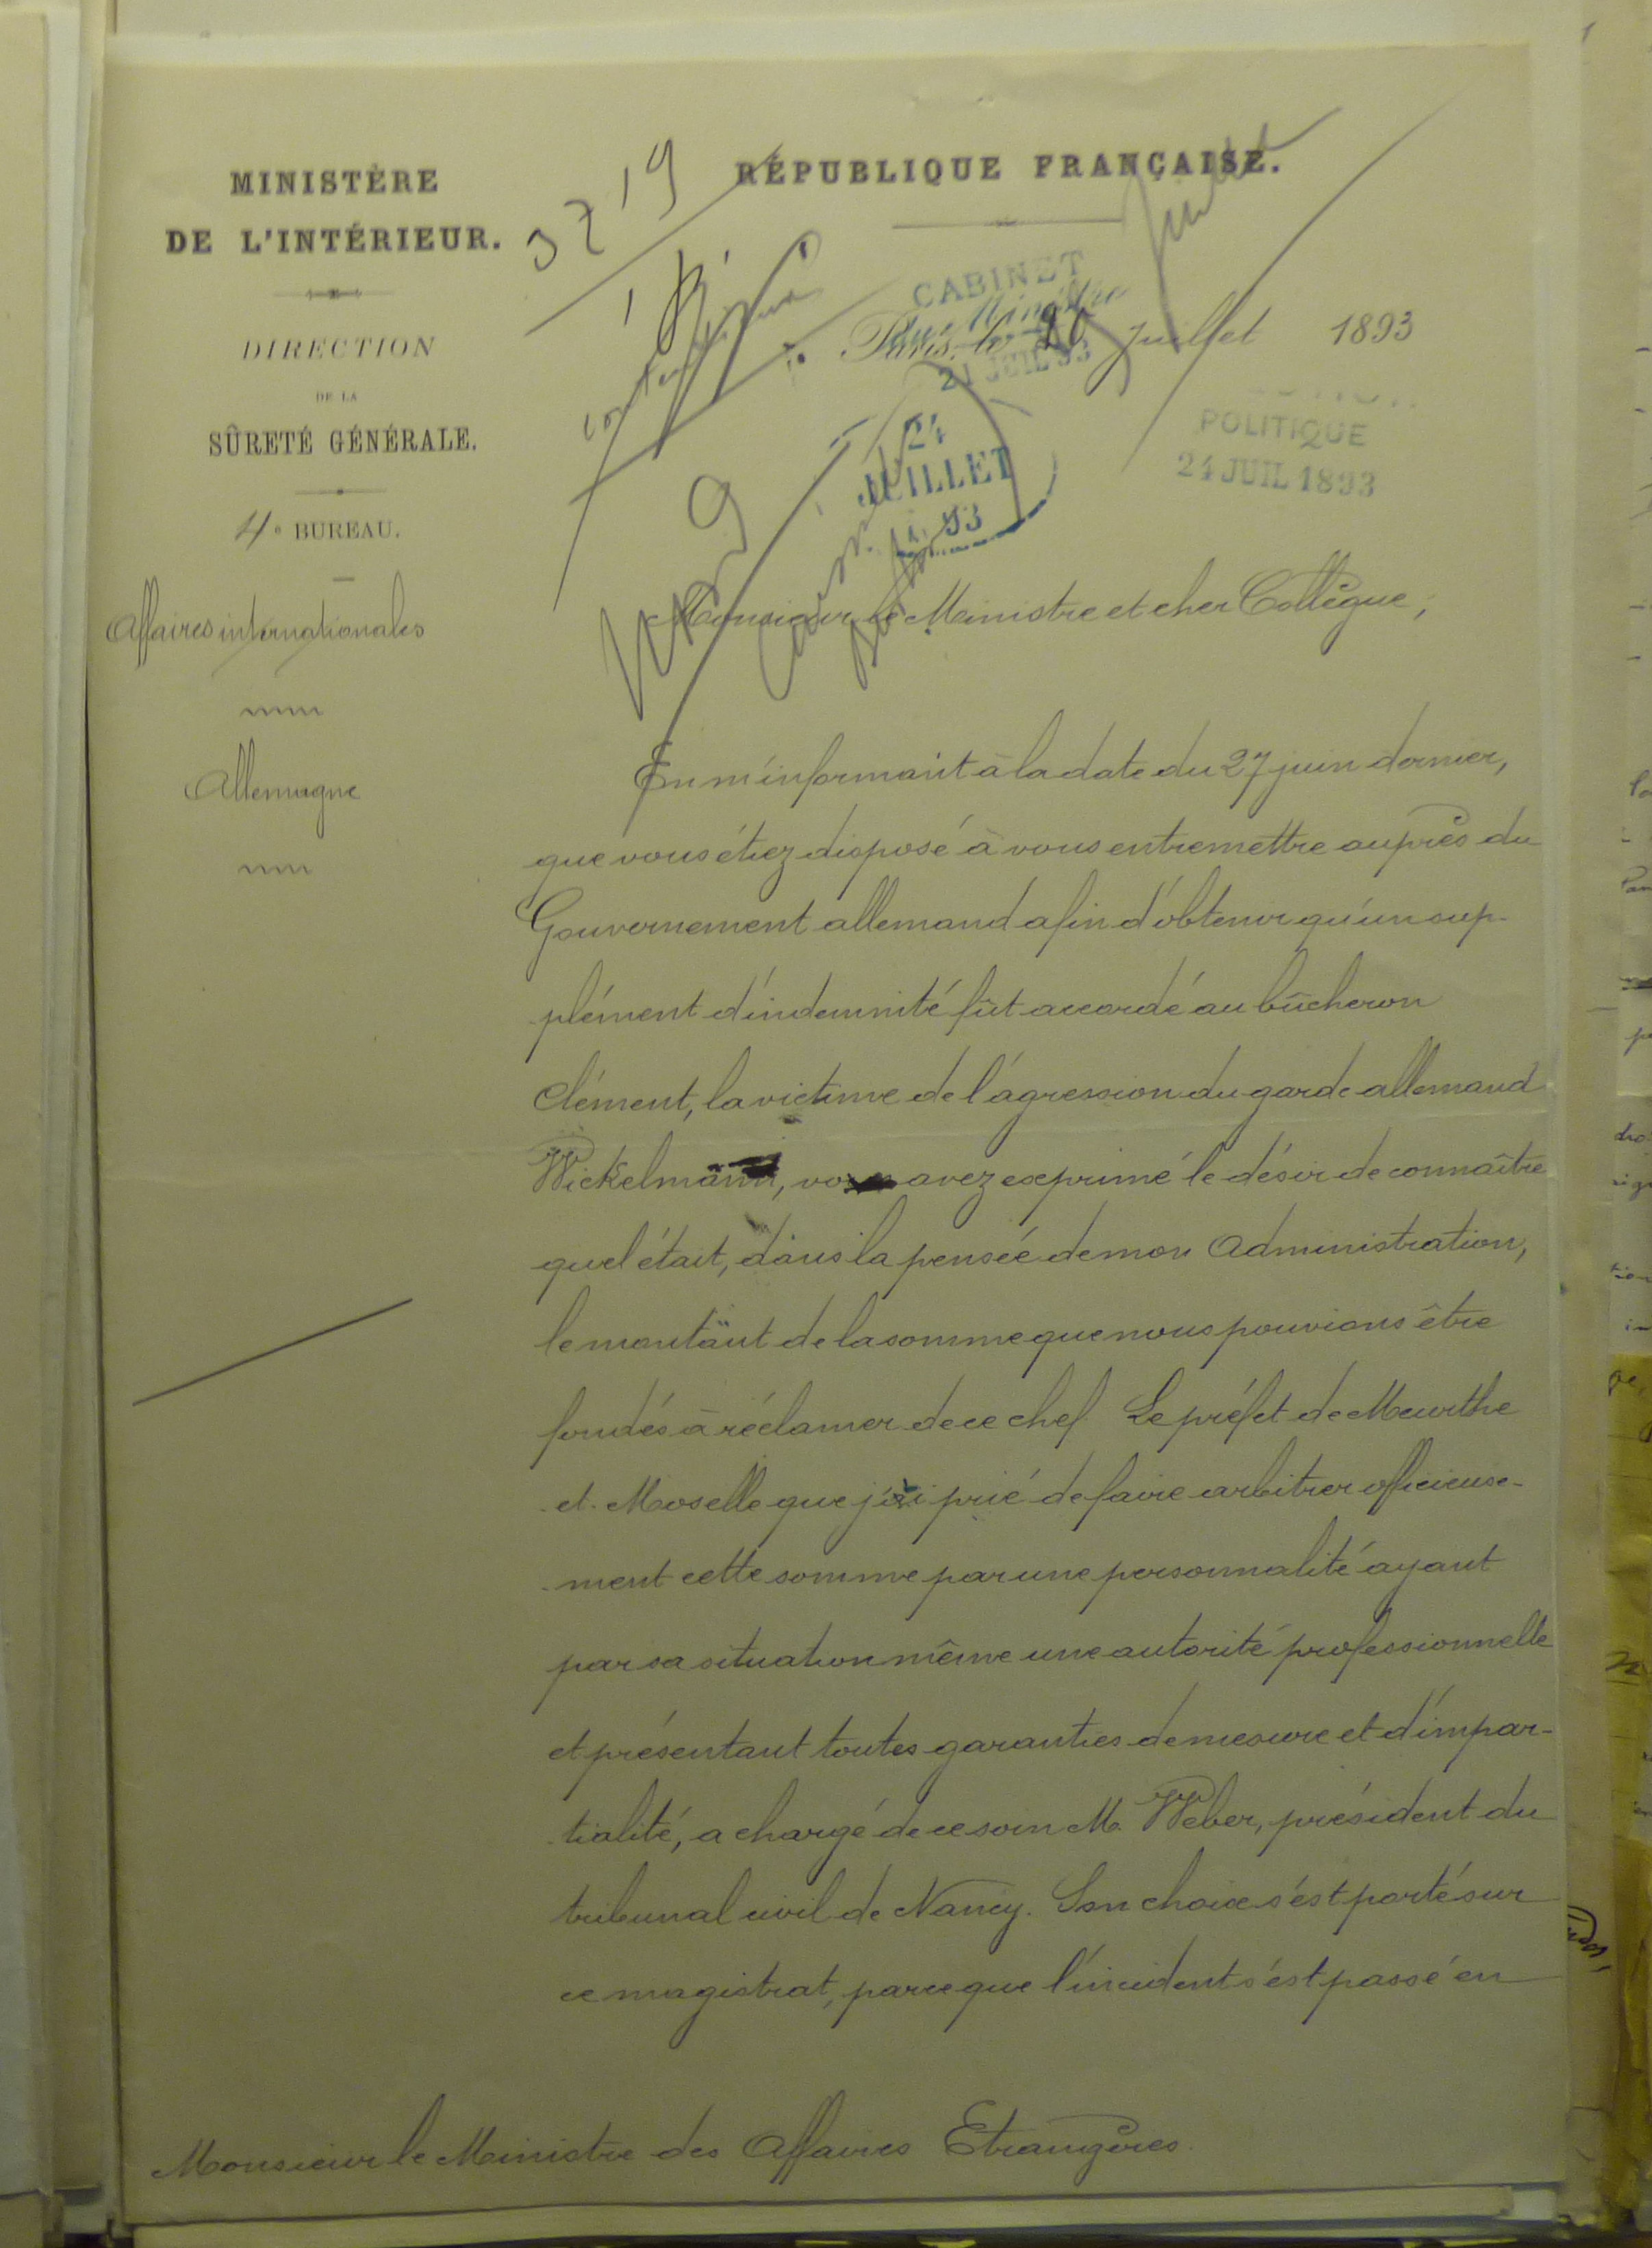 MINISTÈRE
DE L'INTÉRIEUR.
DIRECTION
DE LA
SÛRETÉ GÉNÉRALE.
4e BUREAU.
Affaires internationales
Allemagne
RÉPUBLIQUE FRANÇAISE.
CABINET
du Ministre
21 JUIL 93
Paris, le 20 Juillet 1893
24
JUILLET
93
POLITIQUE
24 JUIL 1893
Monsieur le Ministre et cher Collègue,
En m'informant à la date du 27 juin dernier,
que vous étiez disposé à vous entremettre auprès du
Gouvernement allemand afin d'obtenir qu'un sup-
plément d'indemnité fût accordé au bûcheron
Clément, la victime de l'agression du garde allemand
Wickelmann, vous avez exprimé le désir de connaître
quel était, dans la pensée de mon Administration,
le montant de la somme que nous pouvions être
fondés à réclamer de ce chef. Le préfet de Meurthe
et Moselle que j'ai prié de faire arbitrer officieuse-
ment cette somme par une personnalité ayant
par sa situation même une autorité professionnelle
et présentant toutes garanties de mesure et d'impar-
tialité, a chargé de ce soin M. Weber, président du
tribunal civil de Nancy. Son choix s'est porté sur
ce magistrat, parce que l'incident s'est passé en
Monsieur le Ministre des Affaires Etrangères.